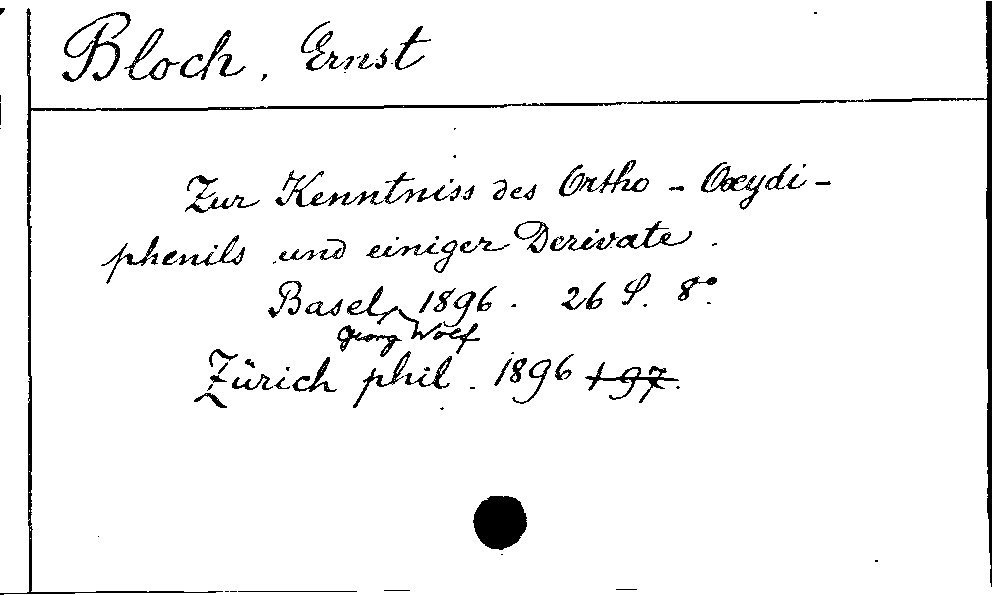 Bloch, Ernst
Zur Kenntniss des Ortho-Oxydi-
phenils und einiger Derivate.
Basel, 1896. 26 S. 8°.
Georg Wolf
Zürich phil. 1896 + 97.